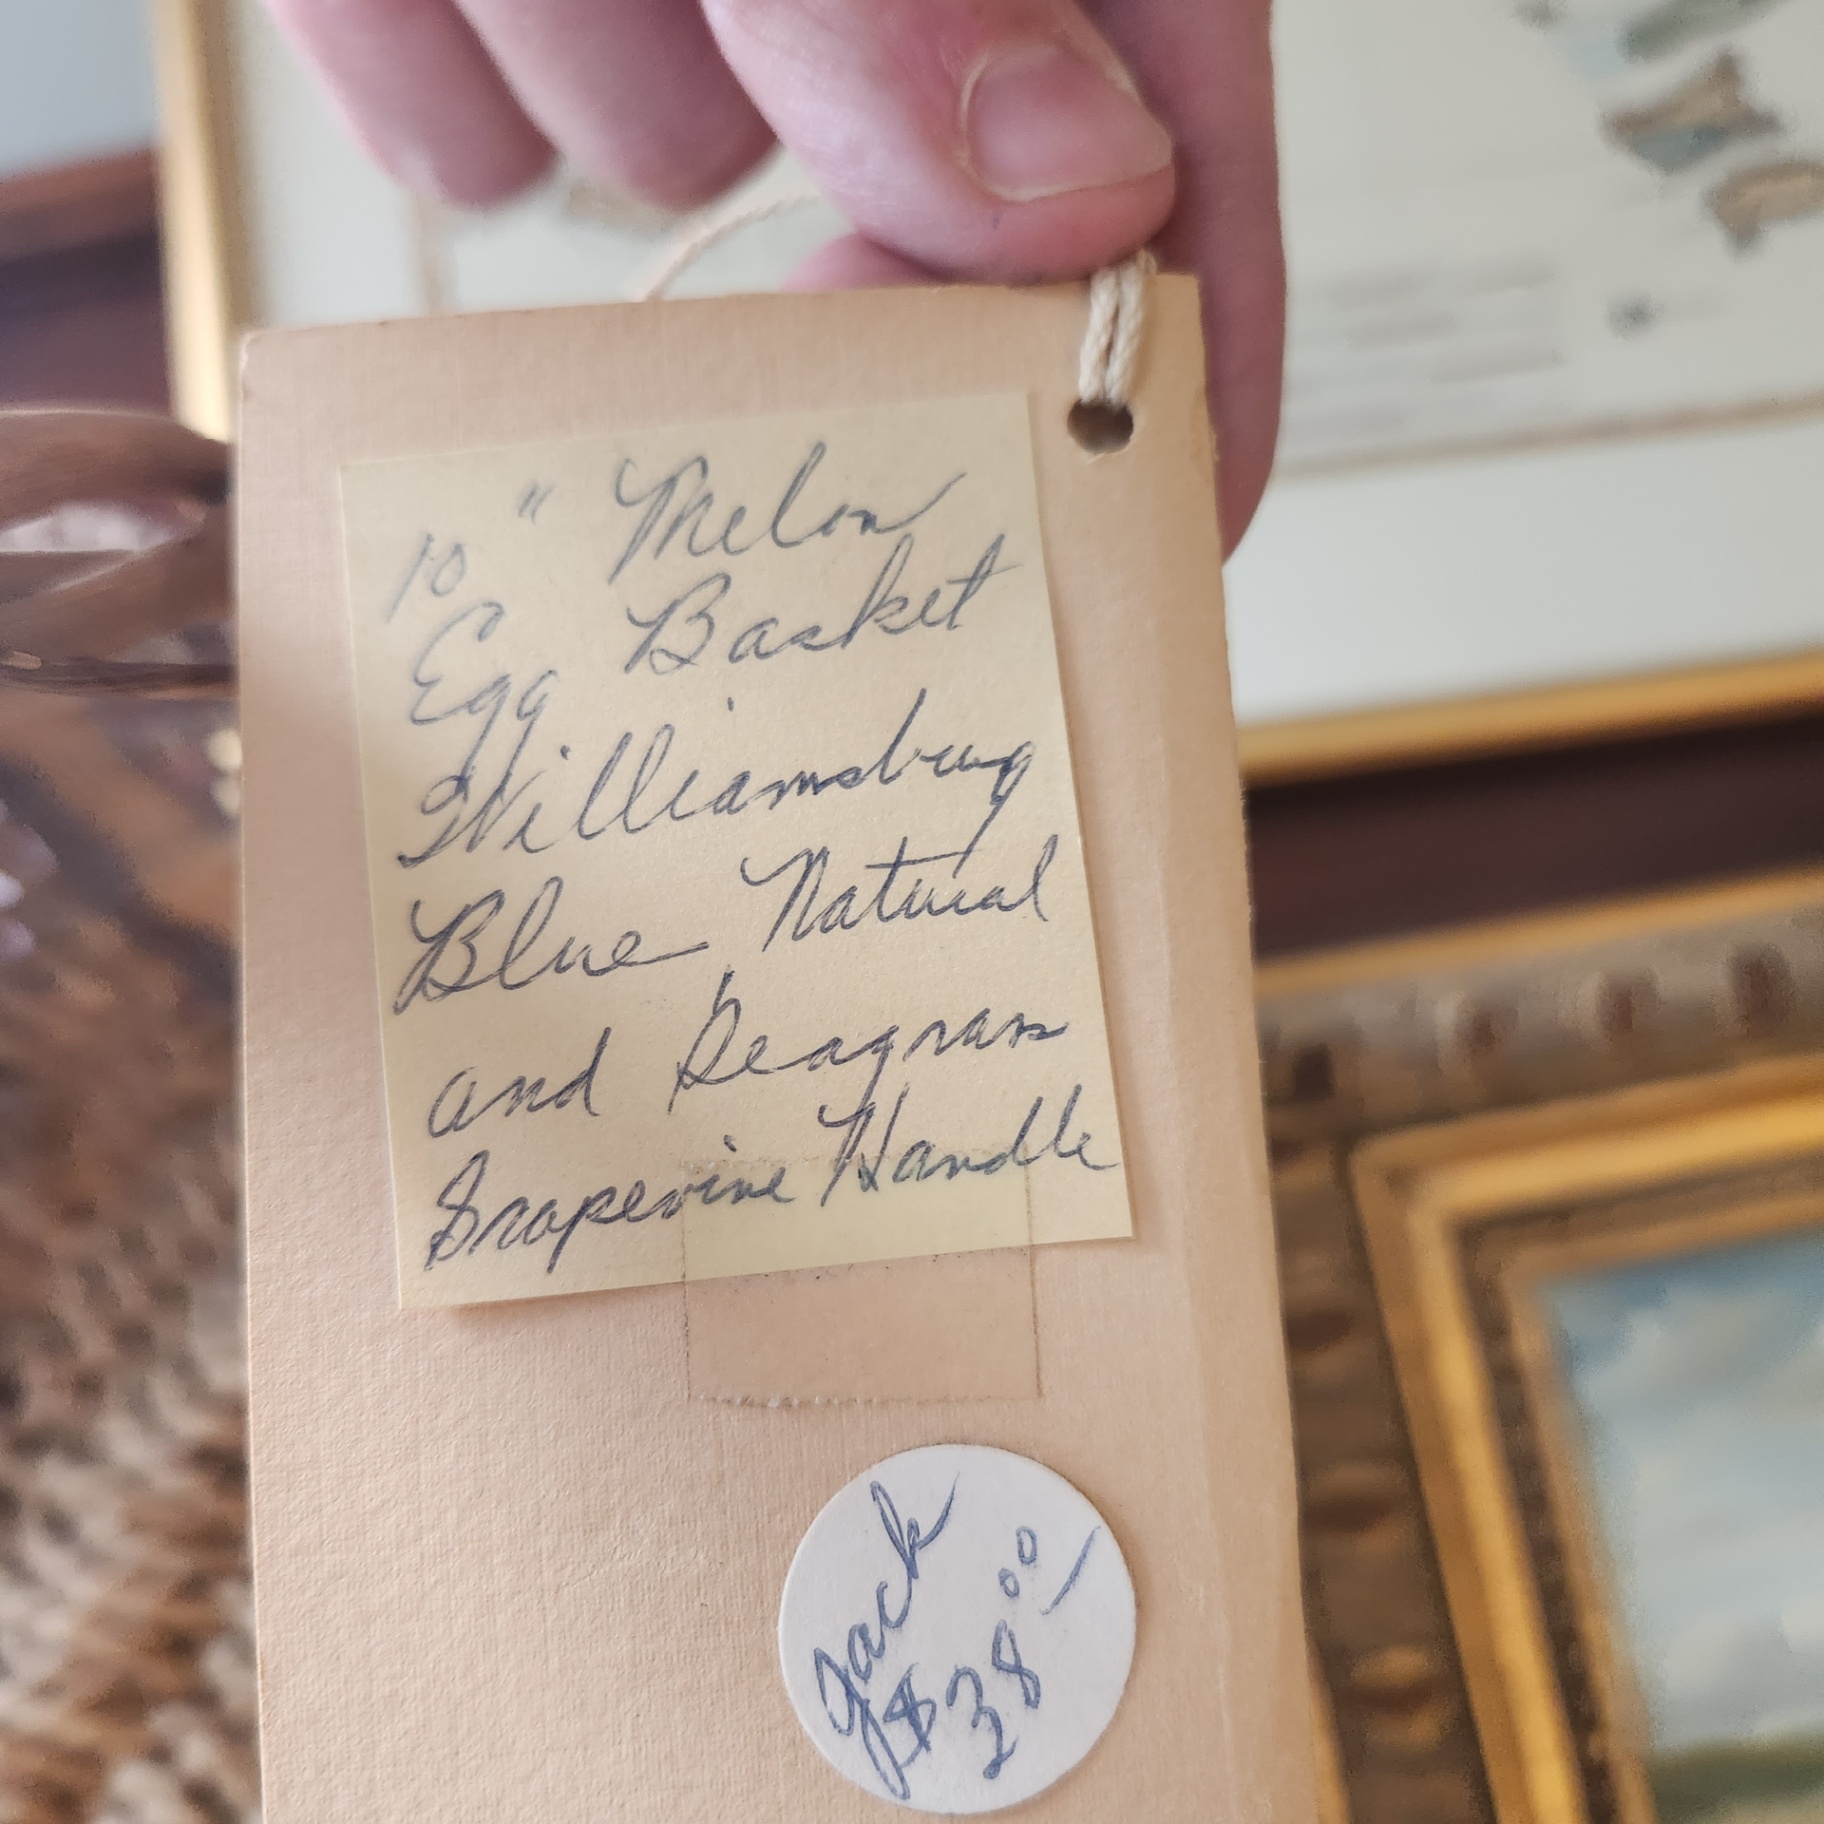 10" Melon
Egg Basket
Williamsburg
Blue Natural
and Seagrass
Grapevine Handle
Jack
$38.00